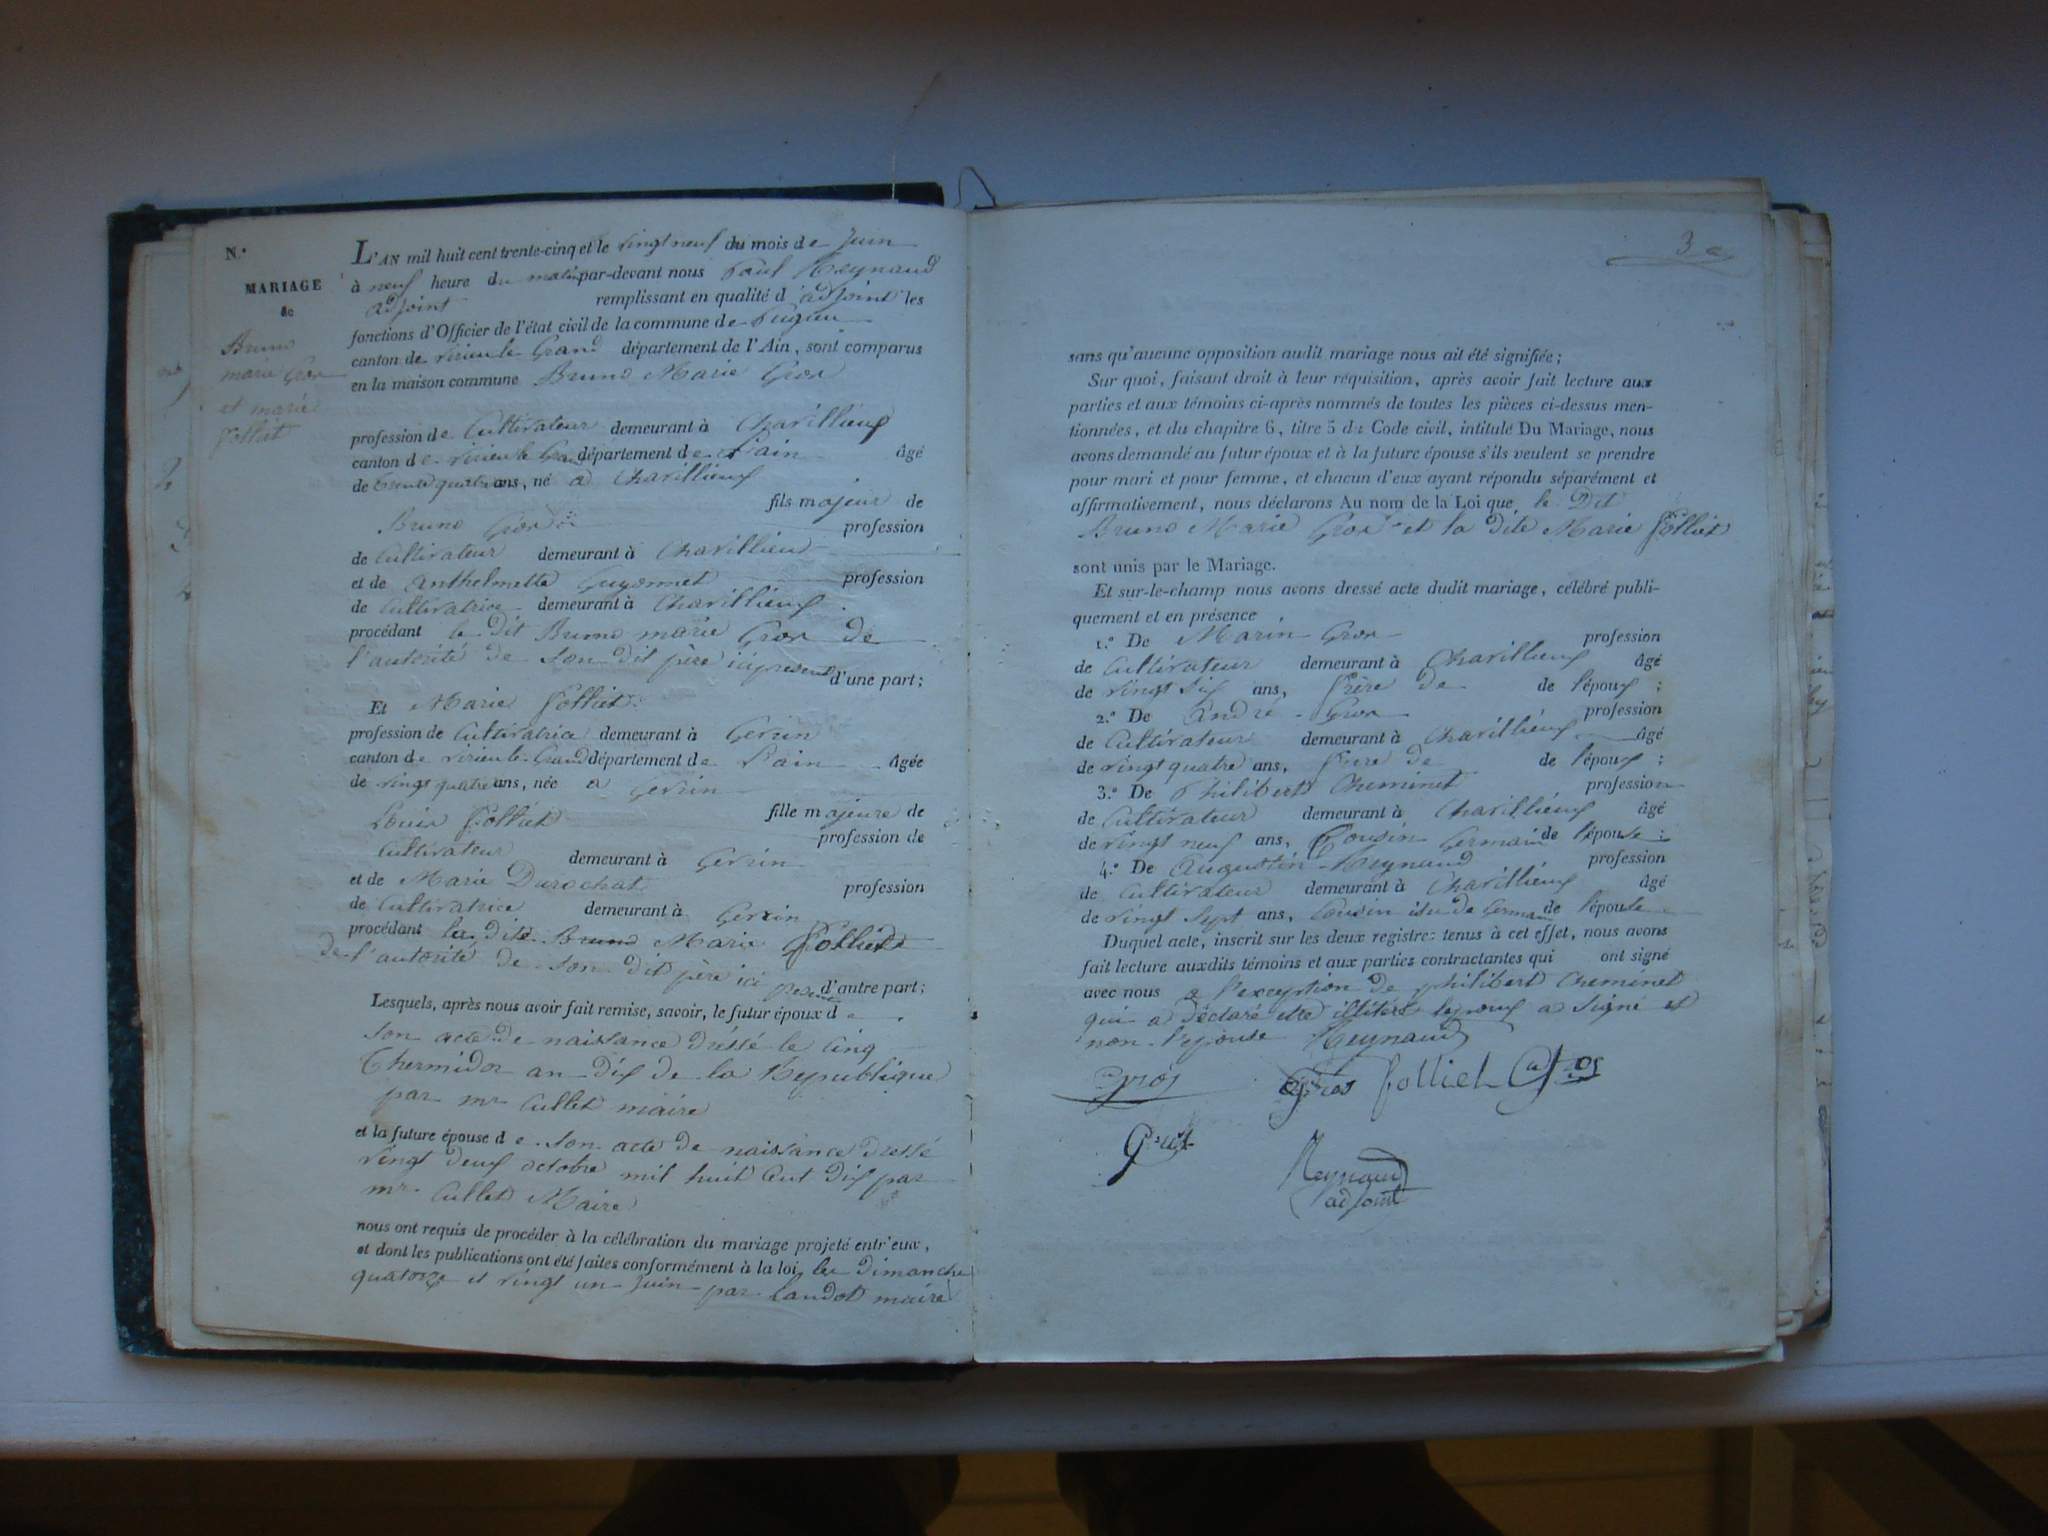 N.°
MARIAGE
de
Bruno
marie Gros
et marie
folliet
L'AN mil huit cent trente-cinq et le vingt neuf du mois de Juin
à neuf heure du matin par-devant nous Paul Reynaud
adjoint remplissant en qualité d'adjoint les
fonctions d'Officier de l'état civil de la commune de Pugieu
canton de virieu le Grand département de l'Ain, sont comparus
en la maison commune Bruno Marie Gros
profession de Cultivateur demeurant à Chavillieux
canton de virieu le Grand département de L'ain âgé
de trente quatre ans, né a Chavillieux
fils majeur de
Bruno Gros profession
de Cultivateur demeurant à Chavillieux
et de Anthelmette Guyonnet profession
de Cultivatrice demeurant à Chavillieux
procédant le dit Bruno marie Gros de
l'autorité de son dit père ici présent d'une part;
Et Marie folliet
profession de Cultivatrice demeurant à Gevrin
canton de virieu le Grand département de L'ain âgée
de vingt quatre ans, née a Gevrin
fille majeure de
Louis folliet profession de
Cultivateur demeurant à Gevrin
et de Marie Durochat profession
de Cultivatrice demeurant à Gevrin
procédant la dite Bruno Marie folliet
de l'autorité de son dit père ici présent d'autre part;
Lesquels, après nous avoir fait remise, savoir, le futur époux de
son acte de naissance dréssé le cinq
Thermidor an dix de la Republique
par mr Cullet maire
et la future épouse de son acte de naissance dressé
vingt deux octobre mil huit cent dix par
mr Cullet Maire
nous ont requis de procéder à la célébration du mariage projeté entr'eux,
et dont les publications ont été faites conformément à la loi, les dimanche
quatorze et vingt un Juin par Landot maire
3
sans qu'aucune opposition audit mariage nous ait été signifiée;
Sur quoi, faisant droit à leur réquisition, après avoir fait lecture aux
parties et aux témoins ci-après nommés de toutes les pièces ci-dessus men-
tionnées, et du chapitre 6, titre 5 du Code civil, intitulé Du Mariage, nous
avons demandé au futur époux et à la future épouse s'ils veulent se prendre
pour mari et pour femme, et chacun d'eux ayant répondu séparément et
affirmativement, nous déclarons Au nom de la Loi que, le Dit
Bruno Marie Gros et la dite Marie folliet
sont unis par le Mariage.
Et sur-le-champ nous avons dressé acte dudit mariage, célébré publi-
quement et en présence
1.° De Marin Gros profession
de Cultivateur demeurant à Chavillieux âgé
de vingt six ans, frère de de l'époux;
2.° De André Gros profession
de Cultivateur demeurant à Chavillieux âgé
de vingt quatre ans, frere de de l'époux;
3.° De Philibert Cheminet profession
de Cultivateur demeurant à Chavillieux âgé
de vingt neuf ans, Cousin Germain de l'épouse;
4.° De Augustin Reynaud profession
de Cultivateur demeurant à Chavillieux âgé
de vingt sept ans, Cousin issu de Germain de l'épouse
Duquel acte, inscrit sur les deux registres tenus à cet effet, nous avons
fait lecture auxdits témoins et aux parties contractantes qui ont signé
avec nous a l'exception de philibert Cheminet
qui a déclaré etre illitéré lepoux a signé et
non l'epouse Reynaud
gros Gros folliet Gros
Reynaud
adjoint